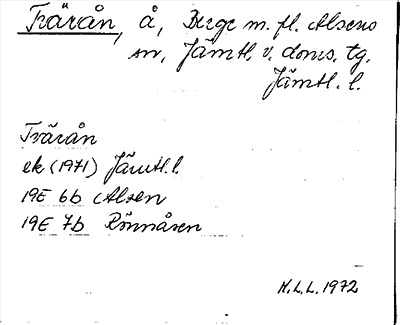 Tvärån, å, Berge m. fl. Alsens
sn, Jämtl. v. doms. tg.
Jämtl. l.
Tvärån
ek (1971) Jämtl. l.
19E 6b Alsen
19E 7b Rönnåsen
H.L.L. 1972